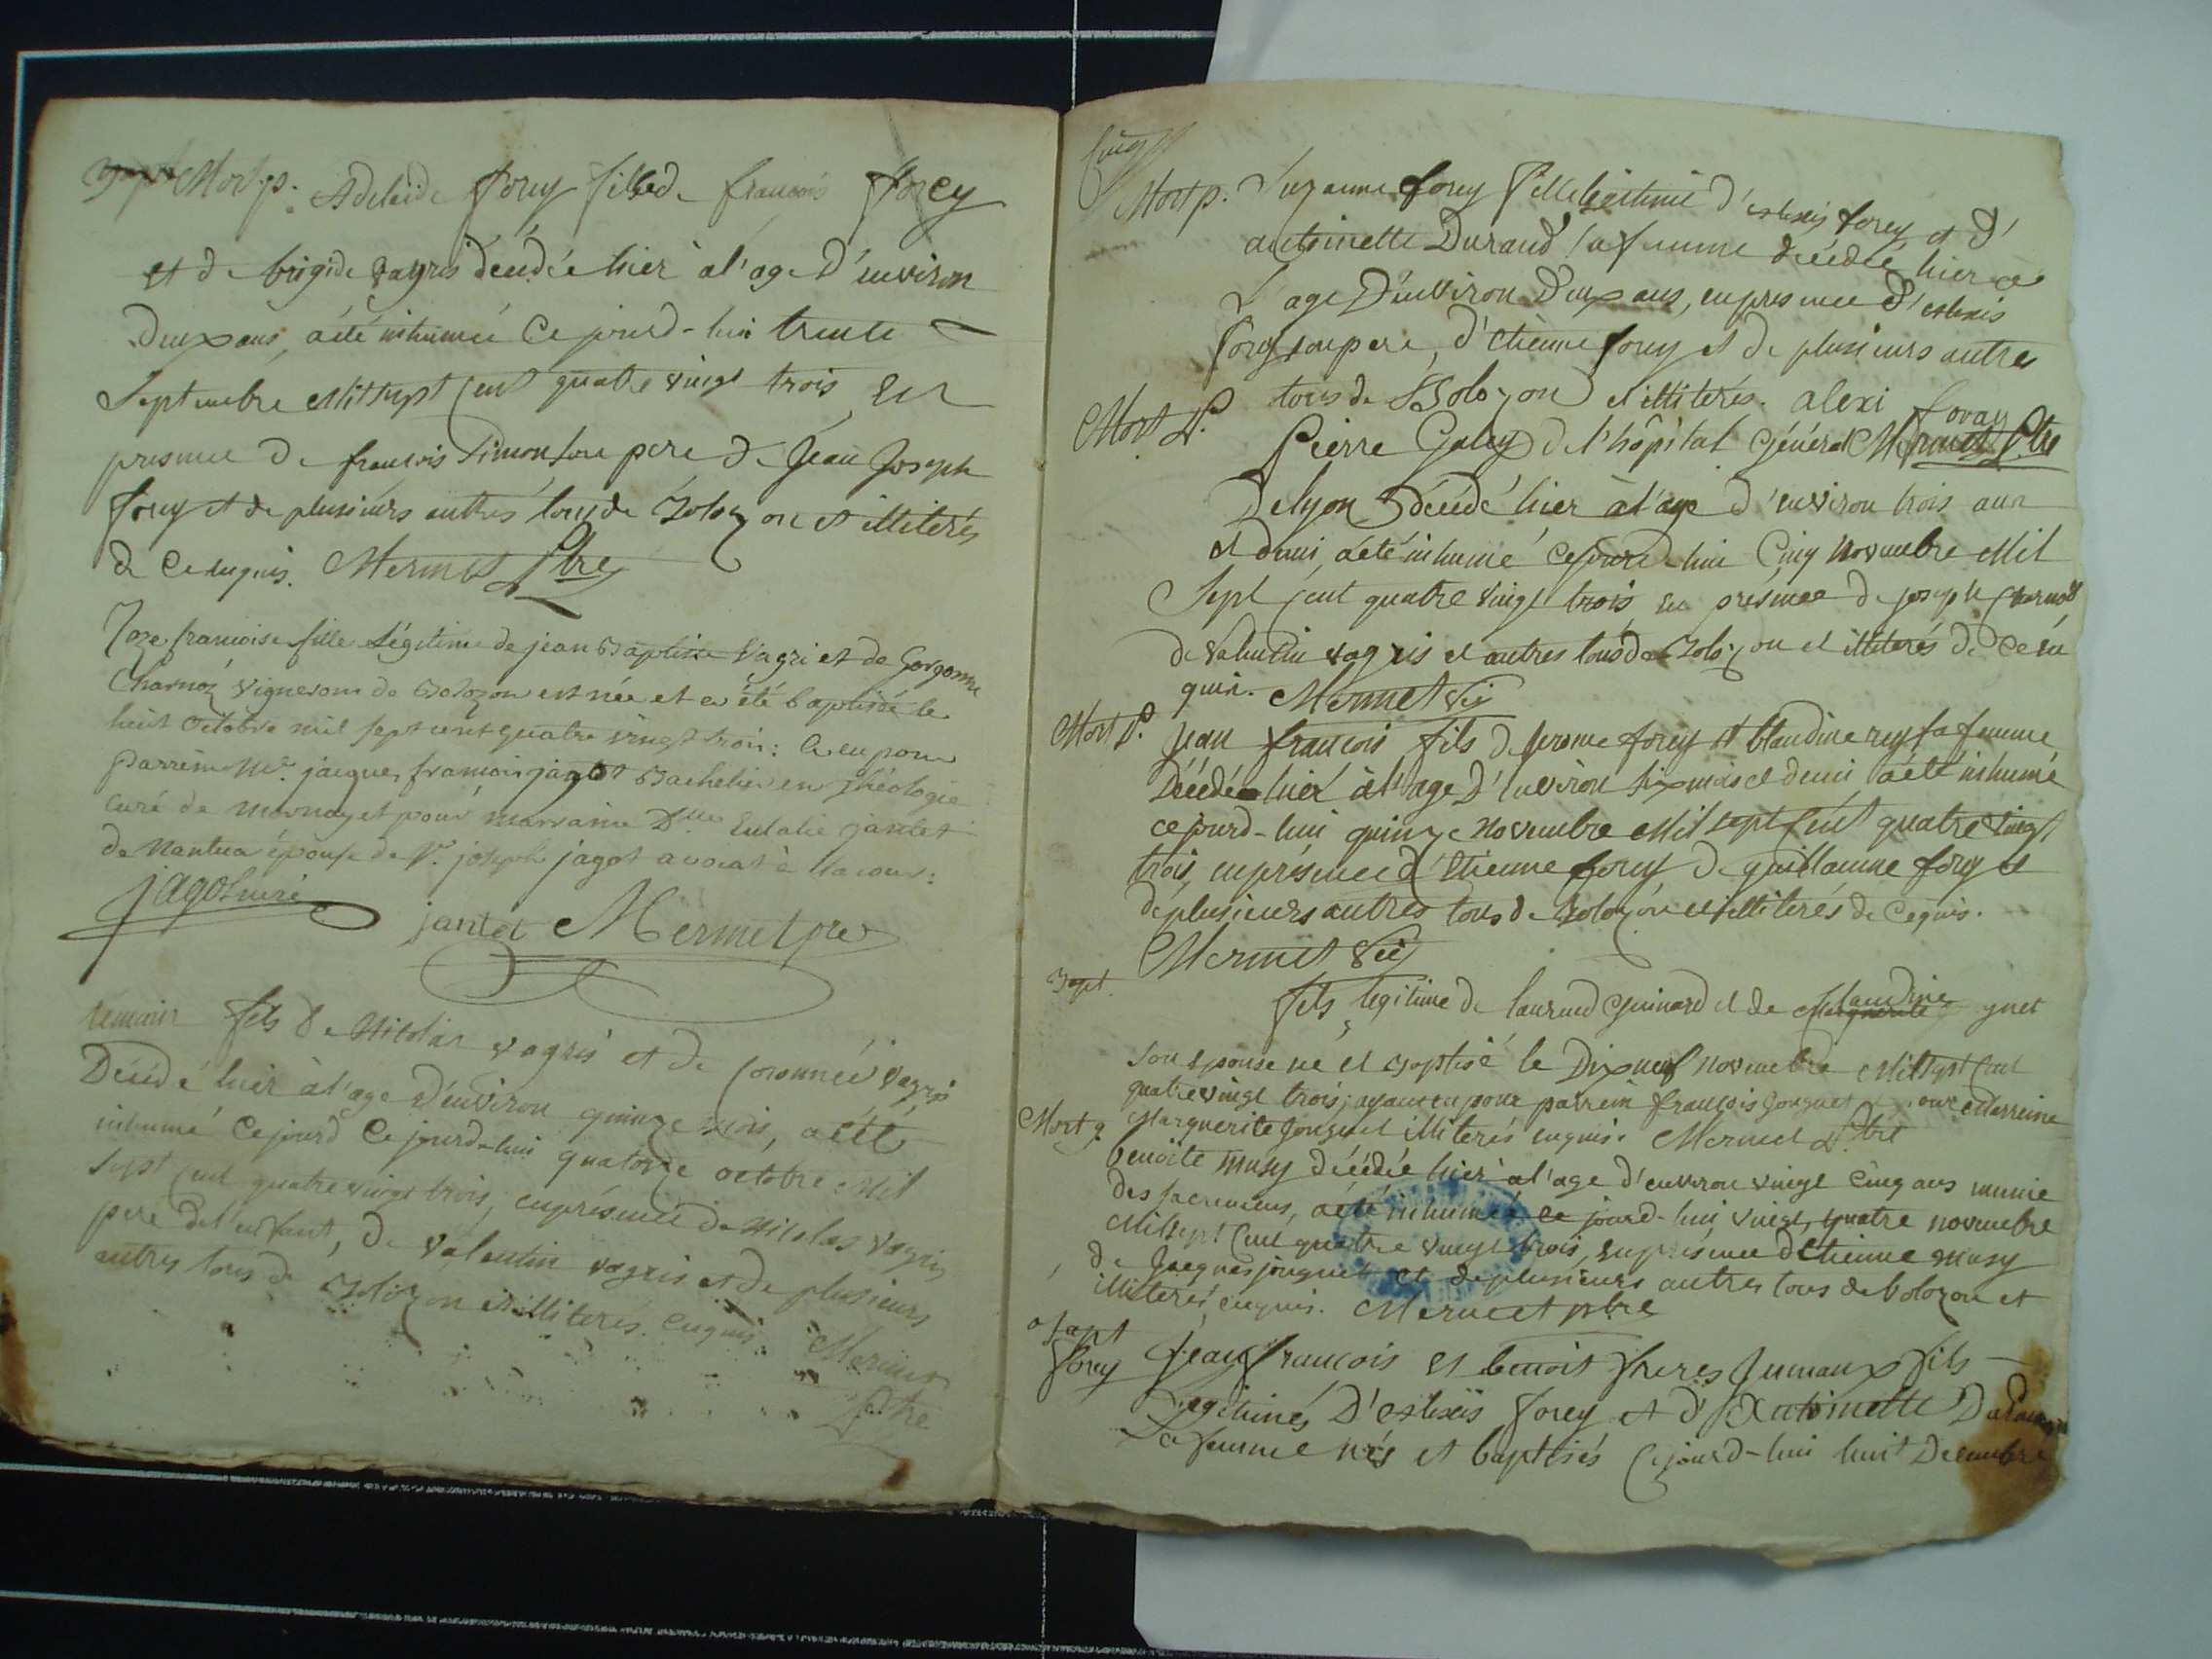 Mort p. Adelaide forey fille de françois forey
et de brigide vagris décédée hier à l'age d'environ
deux ans, a été inhumée ce jourd-hui trente
Septembre Mil sept cent quatre vingt trois, en
presence de françois Simon son pere de Jean Joseph
forey et de plusieurs autres tous de Bolozon et illiterés
de ce enquis. Mermet Ptre
françoise fille Légitime de jean Baptiste Vagri et de Gorgonne
Charnoz vignerons de Bolozon est née et a été baptisée le
huit octobre mil sept cent quatre vingt trois: a eu pour
parrein Mr. jacques francois jagot Bachelier en Théologie
curé de mornay et pour marraine Dlle Eulalie jantet
de Nantua épouse de Sr. joseph jagot avocat à la cour:
jagot curé
jantet Mermet pre
fils de Nicolas vagris et de vagris
Décédé hier à l'age d'environ quinze mois, a été
inhumé Ce jourd Ce jourd-hui quatorze octobre Mil
sept cent quatre vingt trois, en présence de Nicolas vagris
pere de l'enfant, de valentin vagris et de plusieurs
autres tous de Bolozon et illiterés. enquis. Mermet
Ptre
cinq
Mort p. Suzanne forey fille légitime d'alexis forey et d'
antoinette Durand sa femme décédée hier à
L'age d'environ Deux ans, en presence d'alexis
forey son pere, d'etienne forey et de plusieurs autres
tous de Bolozon et illiterés. alexi foray
Mermet Ptre
Mort P. Pierre Galey de l'hôpital Général
De lyon décédé hier à l'age d'environ trois ans
et demi, a été inhumé ce jourd-hui Cinq Novembre Mil
Sept cent quatre vingt trois, en présence de joseph charnod
de valentin vagris et autres tous de Bolozon et illiterés de ce en
quis. Mermet Vic
Mort P. jean françois fils de jerome forey et blandine rey sa femme
Décédé hier à l'age d'environ six mois et demi a été inhumé
ce jourd-hui quinze Novembre Mil sept cent quatre vingt
trois, en présence d'Etienne forey de guillaume forey et
de plusieurs autres tous de Bolozon et illiterés de ce quis.
Mermet Vic
Bapt.
fils legitime de laurend Guinard et de Marguerite Claudine
son épouse né et baptisé le Dix neuf Novembre Mil sept cent
quatre vingt trois; ayant eu pour parrein françois jonguet pour Marreine
Marguerite jonguet illiterés enquis. Mermet Ptre
Mort g. benoite musy décédée hier à l'age d'environ vingt cinq ans munie
des sacremens, a été inhumée ce jourd-hui, vingt, quatre novembre
Mil sept cent quatre vingt trois, en présence d'Etienne musy
de jacques jonguet et de plusieurs autres tous de bolozon et
illiterés enquis. Mermet ptre
Bapt
forey jean françois et benoit freres jumeaux fils
Légitimes D'alexis forey et d'Antoinette Durand
sa femme nés et baptisés ce jourd-hui huit Decembre